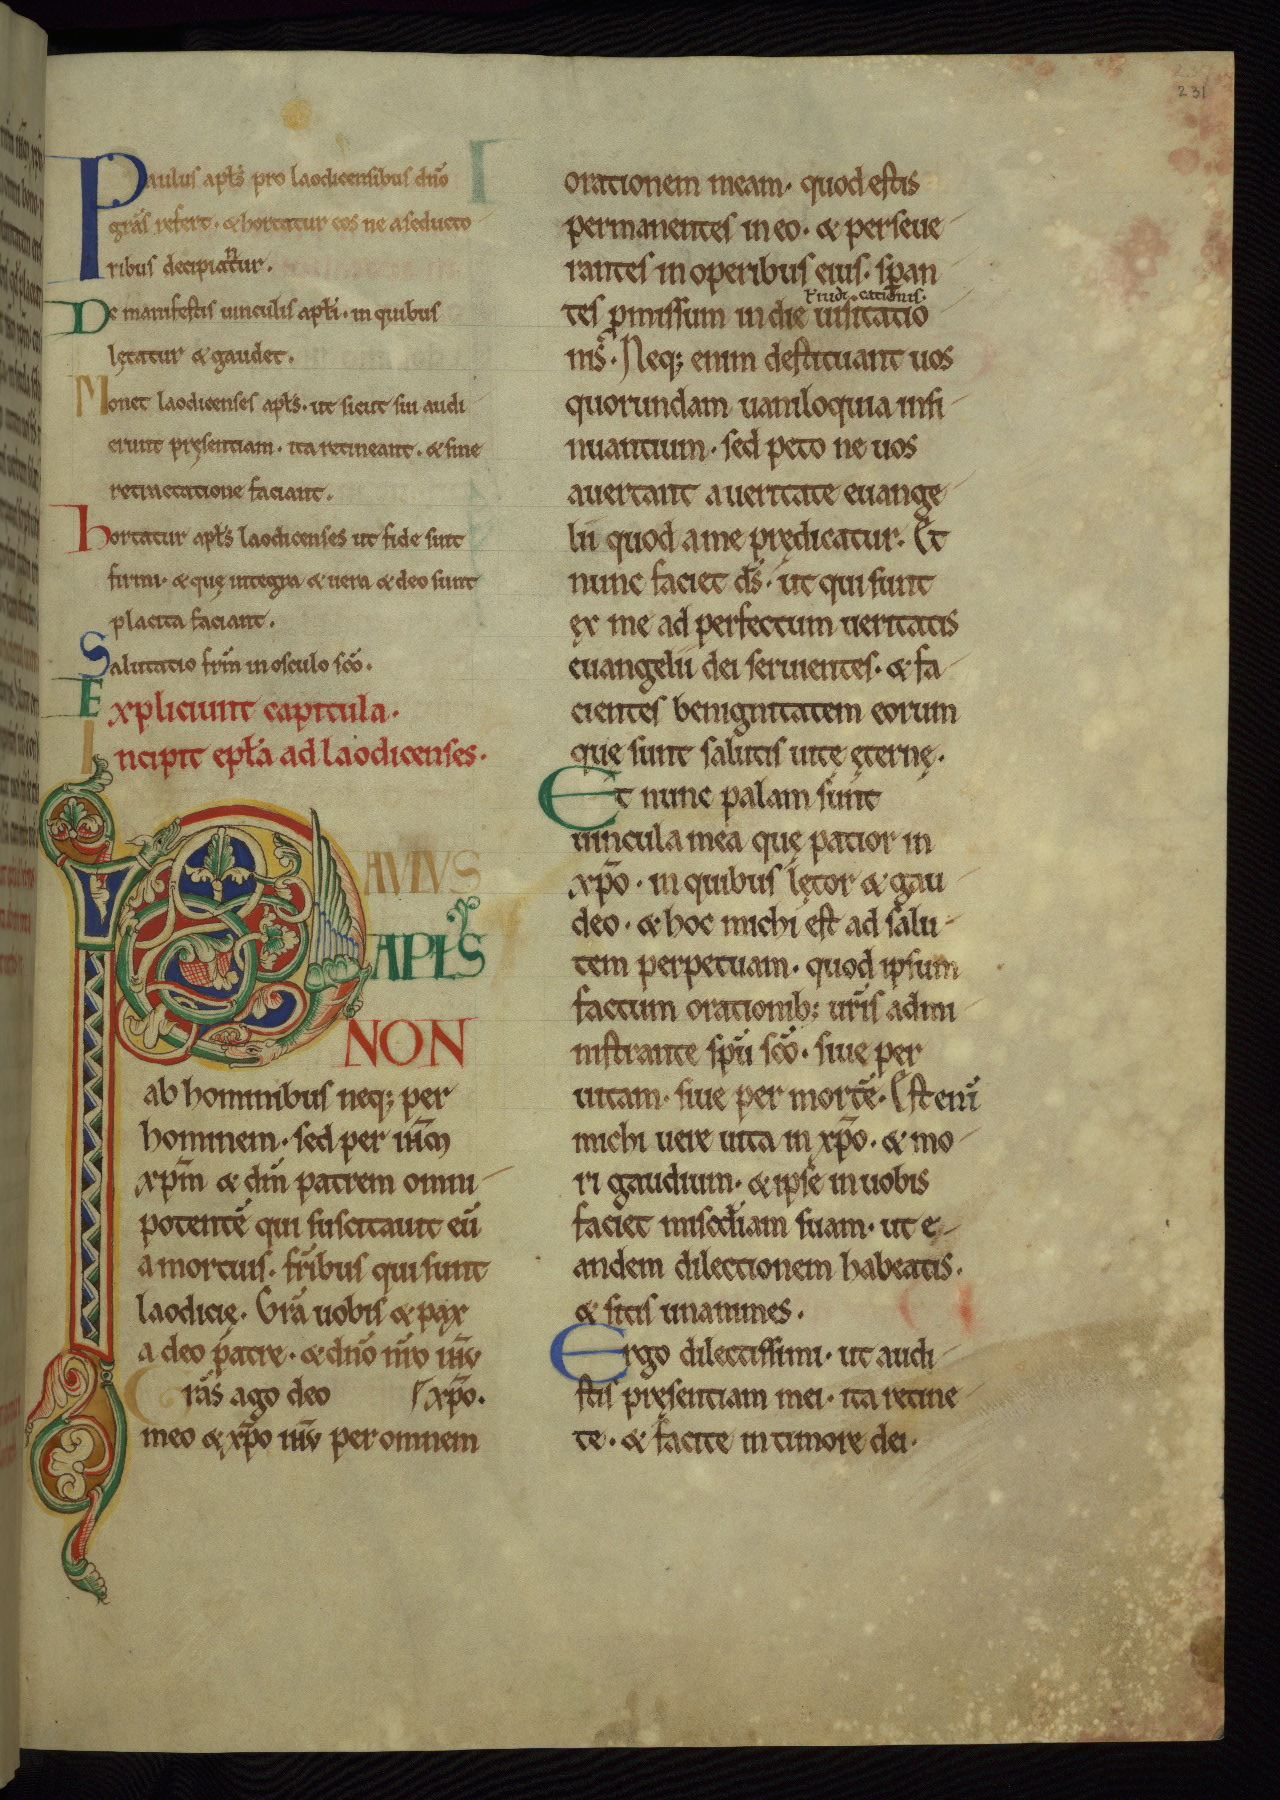 231
Paulus apłs pro laodicensibus dño
grãs refert · & hortatur eos ne a seducto
ribus decipiatur.
De manifestis uinculis apłi · in quibus
lętatur & gaudet.
Monet laodicenses apłs · ut sicut sui audi
erunt pręsentiam · ita retineant · & sine
retractatione faciant.
hortatur apłs laodicenses ut fide sint
firmi · & quę integra & uera & deo sunt
placita faciant.
Salutatio frm̃ in osculo sc̃o.
Expliciunt capitula.
Incipit epła ad laodicenses.
PAVLVS
APLS
NON
ab hominibus neq; per
hominem · sed per ihm̃
xpm̃ & dm̃ patrem omni
potentẽ qui suscitauit eũ
a mortuis. fribus qui sunt
laodicię. Gr̃a uobis & pax
a deo patre · & dño nr̃o ihu̅
xp̃o.
Grãs ago deo
meo & xp̃o ihu̅ per omnem
orationem meam · quod estis
permanentes in eo · & perseue
rantes in operibus eius · speran
iudicationis.
tes pmissum in die uisitatio
nis. Neq; enim destituant uos
quorundam uaniloquia insi
nuantium · sed peto ne uos
auertant a ueritate euange
lii quod a me prędicatur. Et
nunc faciet ds̃ · ut qui sunt
ex me ad perfectum ueritatis
euangelii dei seruientes · & fa
cientes benignitatem eorum
que sunt salutis uitę ęternę.
Et nunc palam sunt
uincula mea quę patior in
xp̃o · in quibus lętor & gau
deo · & hoc michi est ad salu
tem perpetuam · quod ipsum
factum orationib; ur̃is admi
nistrante spũ sc̃o · siue per
uitam · siue per mortẽ. Est enĩ
michi uere uita in xp̃o · & mo
ri gaudium · & ipse in uobis
faciet misc̃diam suam · ut e
andem dilectionem habeatis.
& sitis unanimes.
Ergo dilectissimi · ut audi
stis pręsentiam mei · ita retine
te · & facite in timore dei ·